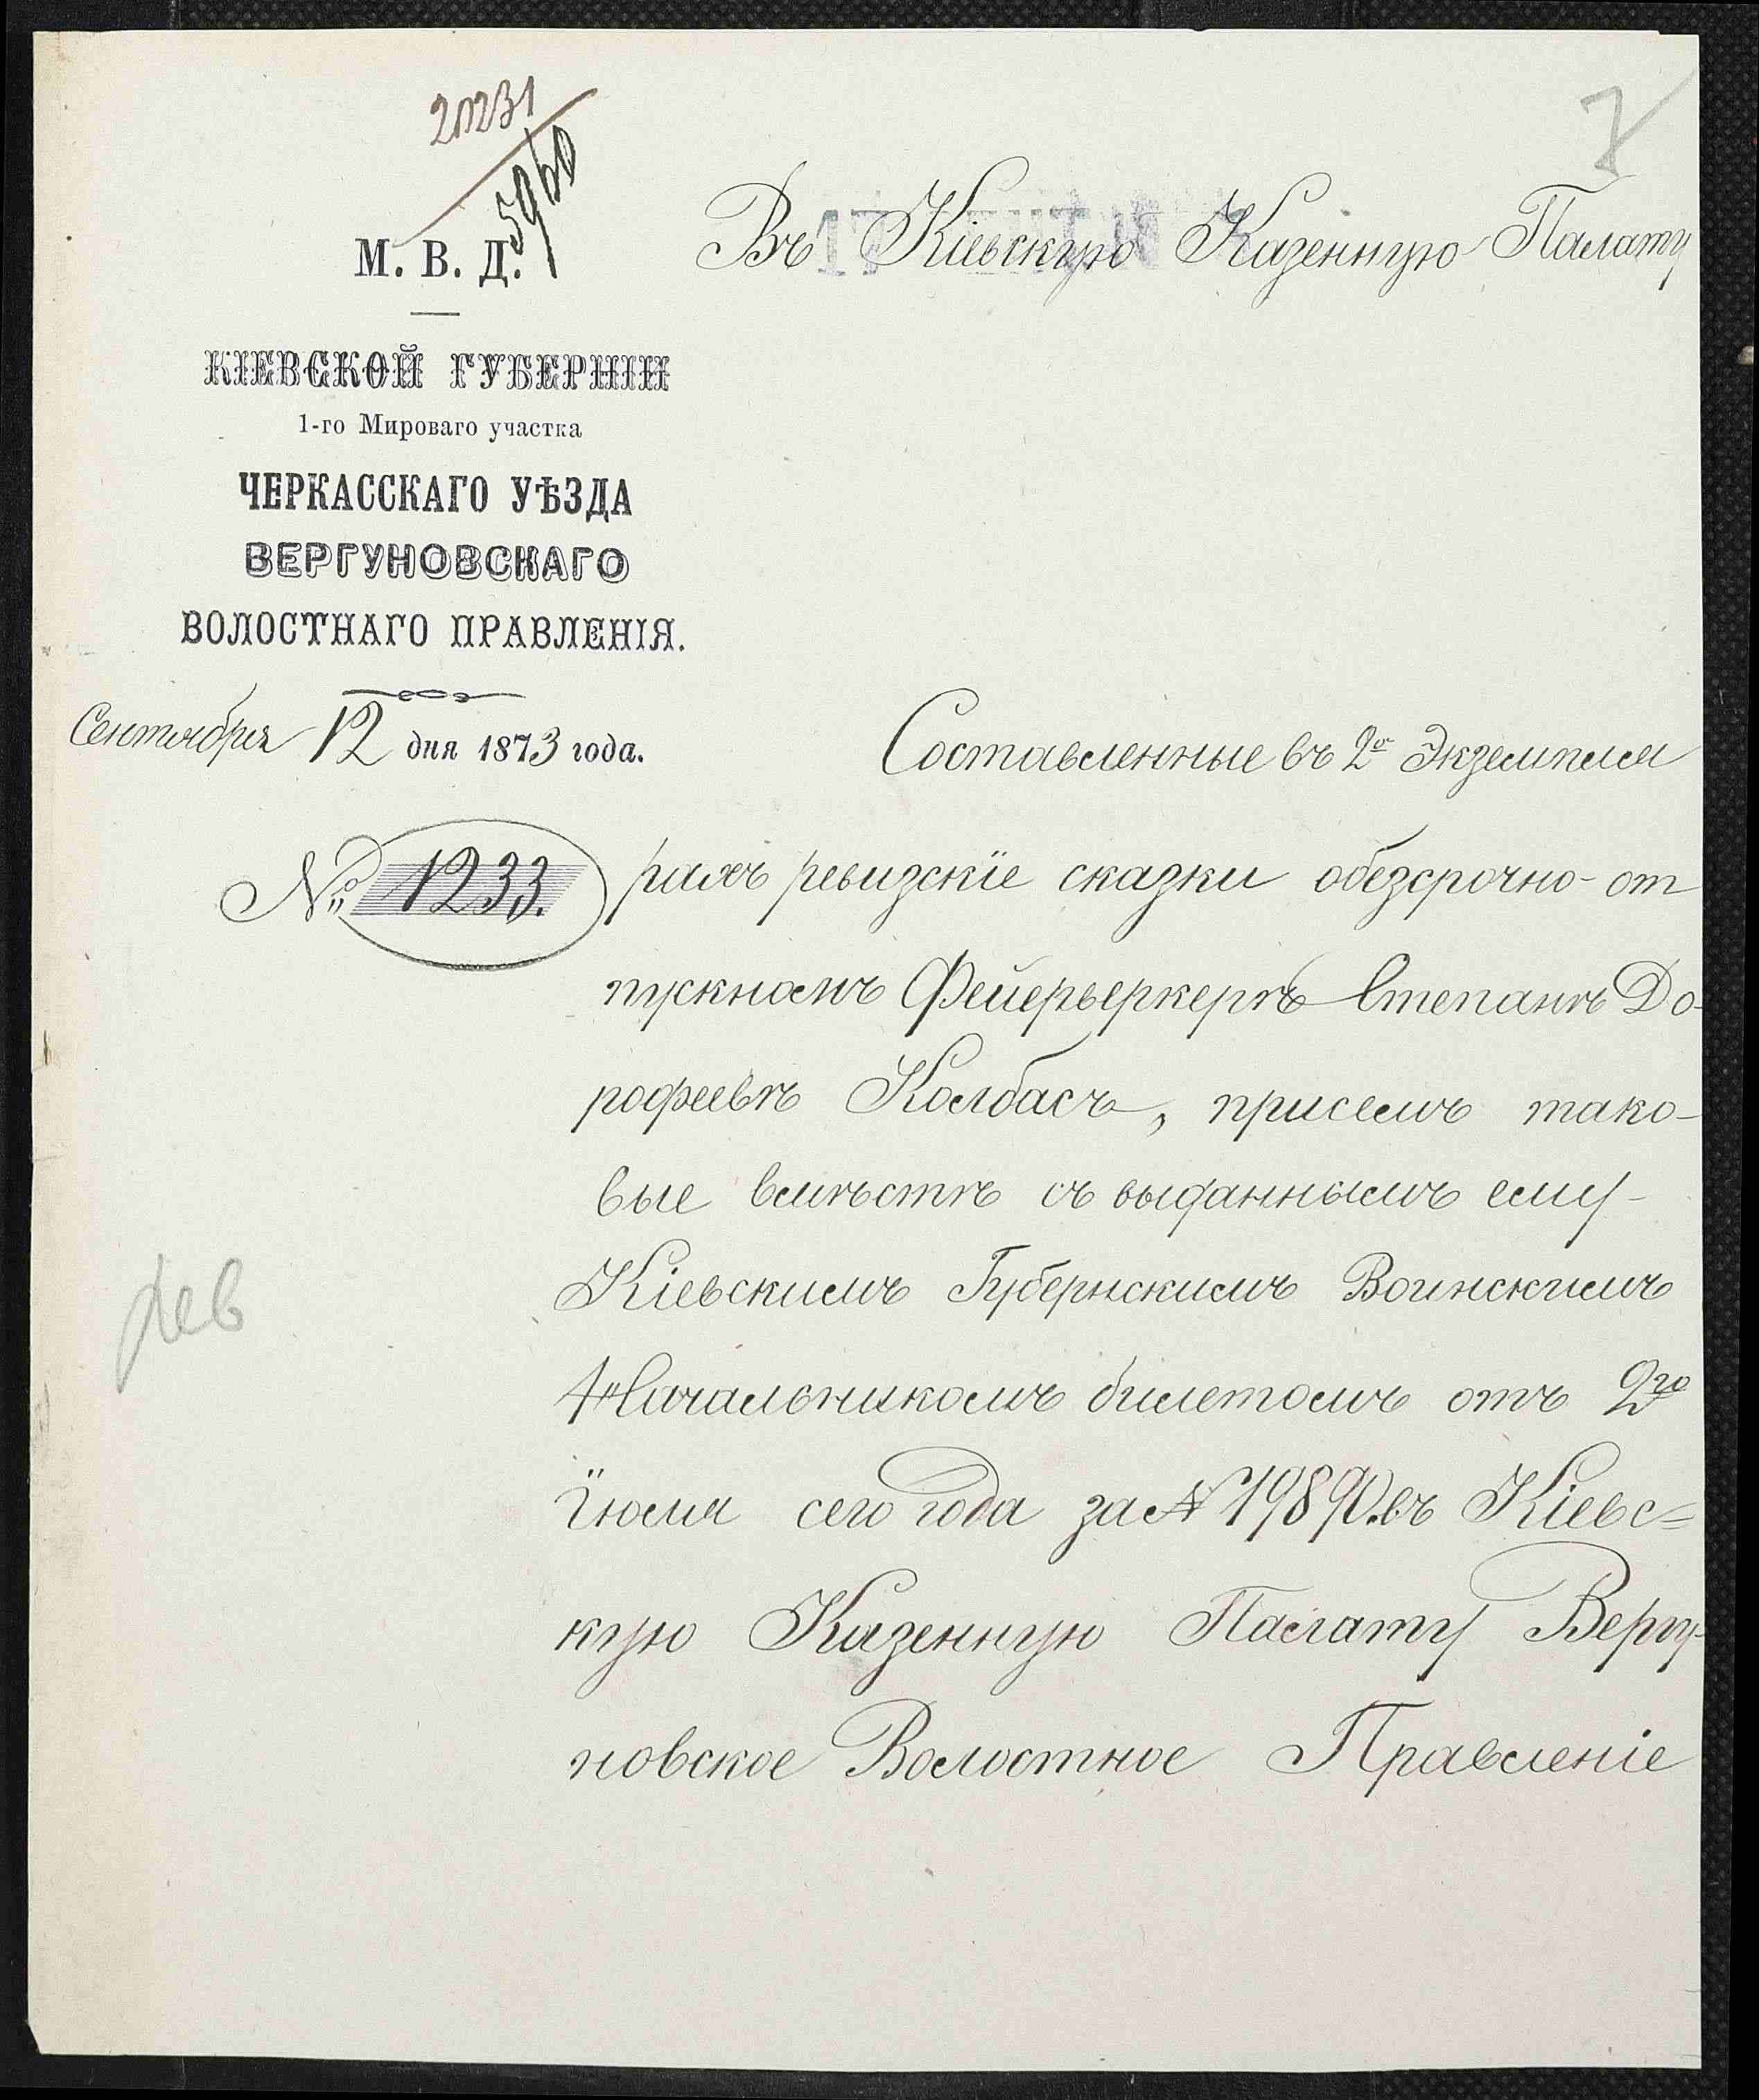 20231
5960
7
М. В. Д.
КІЕВСКОЙ ГУБЕРНІИ
1-го Мироваго участка
ЧЕРКАССКАГО УѢЗДА
ВЕРГУНОВСКАГО
ВОЛОСТНАГО ПРАВЛЕНІЯ.
Сентября 12 дня 1873 года.
№ 1233.
Въ Кіевскую Казенную Палату
Составленные въ 2х Экземпля
рахъ ревизскіе сказки обезсрочно-от
пускномъ Фейерверкерѣ Степанѣ До-
рофеевѣ Колбасѣ, присемъ тако-
вые вмѣстѣ съ выданнымъ ему-
Кіевскимъ Губернскимъ Воинскимъ
Начальникомъ билетомъ отъ 2го
Іюля сего года за № 19890. въ Кіевс=
кую Казенную Палату Вергу-
новское Волостное Правленіе